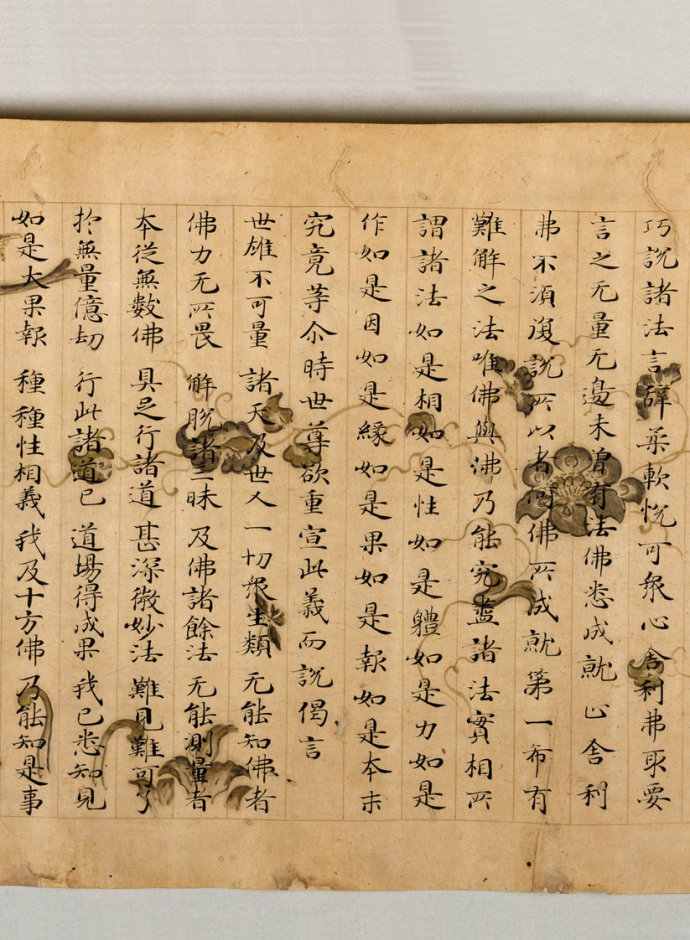 巧說諸法言辭柔軟悅可衆心舍利弗取要
言之无量无邊未曾有法佛悉成就止舍利
弗不須復說所以者何佛所成就第一希有
難解之法唯佛與佛乃能究盡諸法實相所
謂諸法如是相如是性如是軆如是力如是
作如是因如是緣如是果如是報如是本末
究竟等尒時世尊欲重宣此義而說偈言
世雄不可量 諸天及世人 一切衆生類 无能知佛者
佛力无所畏 解脫諸三昧 及佛諸餘法 无能測量者
本從無數佛 具足行諸道 甚深微妙法 難見難可了
於無量億劫 行此諸道已 道場得成果 我已悉知見
如是大果報 種種性相義 我及十方佛 乃能知是事